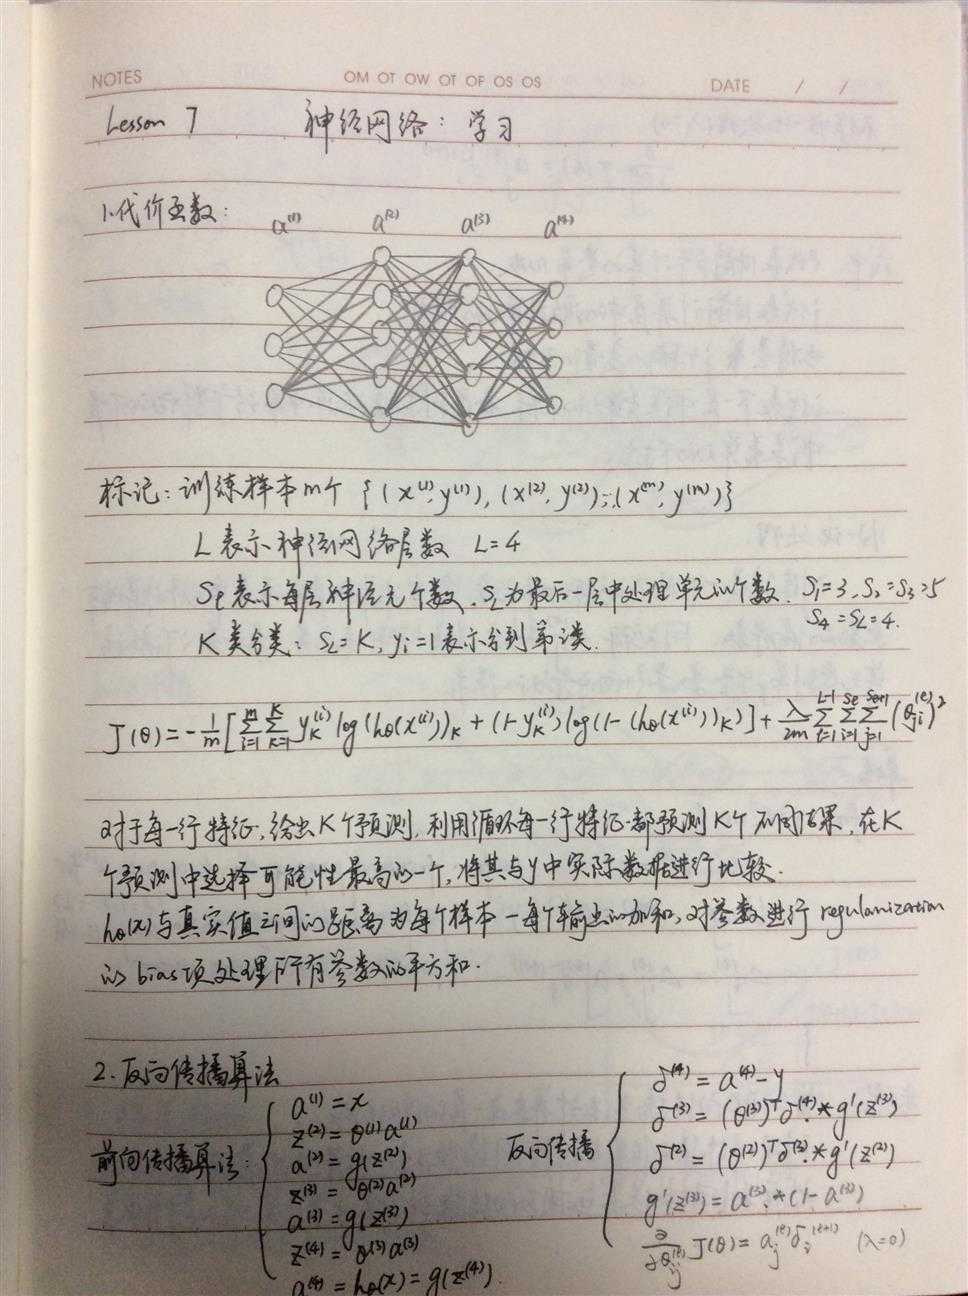 NOTES OM OT OW OT OF OS OS DATE / /
Lesson 7 神经网络：学习
1.代价函数：
a⁽¹⁾ a⁽²⁾ a⁽³⁾ a⁽⁴⁾
标记：训练样本m个 {(x⁽¹⁾, y⁽¹⁾), (x⁽²⁾, y⁽²⁾)…(x⁽ᵐ⁾, y⁽ᵐ⁾)}
L 表示神经网络层数 L=4
Sℓ表示每层神经元个数. S_L为最后一层中处理单元的个数. S₁=3, S₂=S₃=5
S₄=S_L=4.
K 类分类：S_L=K, yᵢ=1表示分到第i类.
J(θ)=-1/m[∑_{i=1}^{m}∑_{k=1}^{K} y_k⁽ⁱ⁾log(h_θ(x⁽ⁱ⁾))_k+(1-y_k⁽ⁱ⁾)log(1-(h_θ(x⁽ⁱ⁾))_k)]+λ/2m ∑_{ℓ=1}^{L-1}∑_{i=1}^{Sℓ}∑_{j=1}^{Sℓ+1}(θ_{ji}^{(ℓ)})²
对于每一行特征，给出K个预测，利用循环每一行特征都预测K个不同结果，在K
个预测中选择可能性最高的一个，将其与y中实际数据进行比较.
h_θ(x)与真实值之间的距离为每个样本一每个输出的加和，对参数进行regularization
的bias项处理所有参数的平方和.
2.反向传播算法
前向传播算法：
a⁽¹⁾=x
z⁽²⁾=θ⁽¹⁾a⁽¹⁾
a⁽²⁾=g(z⁽²⁾)
z⁽³⁾=θ⁽²⁾a⁽²⁾
a⁽³⁾=g(z⁽³⁾)
z⁽⁴⁾=θ⁽³⁾a⁽³⁾
a⁽⁴⁾=h_θ(x)=g(z⁽⁴⁾).
反向传播
δ⁽⁴⁾=a⁽⁴⁾-y
δ⁽³⁾=(θ⁽³⁾)ᵀδ⁽⁴⁾.*g'(z⁽³⁾)
δ⁽²⁾=(θ⁽²⁾)ᵀδ⁽³⁾.*g'(z⁽²⁾)
g'(z⁽³⁾)=a⁽³⁾.*(1-a⁽³⁾)
∂/∂θ_{ij}^{(ℓ)} J(θ)=a_j^{(ℓ)}δ_i^{(ℓ+1)} (λ=0)